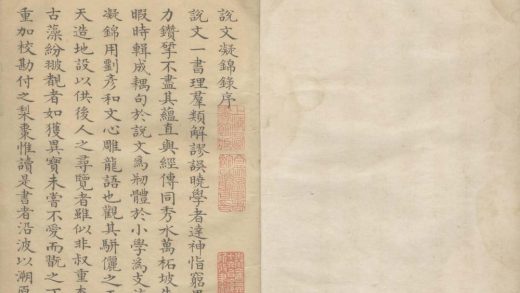 說文凝錦錄序
說文一書理羣類解謬誤曉學者達神恉窮
力鑽擘不盡其蘊直與經傳同秀水萬柘坡先
暇時輯成耦句於說文為刱體於小學為支
凝錦用劉彥和文心雕龍語也觀其駢儷之
天造地設以供後人之尋覽者雖似非叔重
古藻紛披覩者如獲異寶未嘗不愛而翫之
重加校勘付之梨棗惟讀是書者沿波以溯